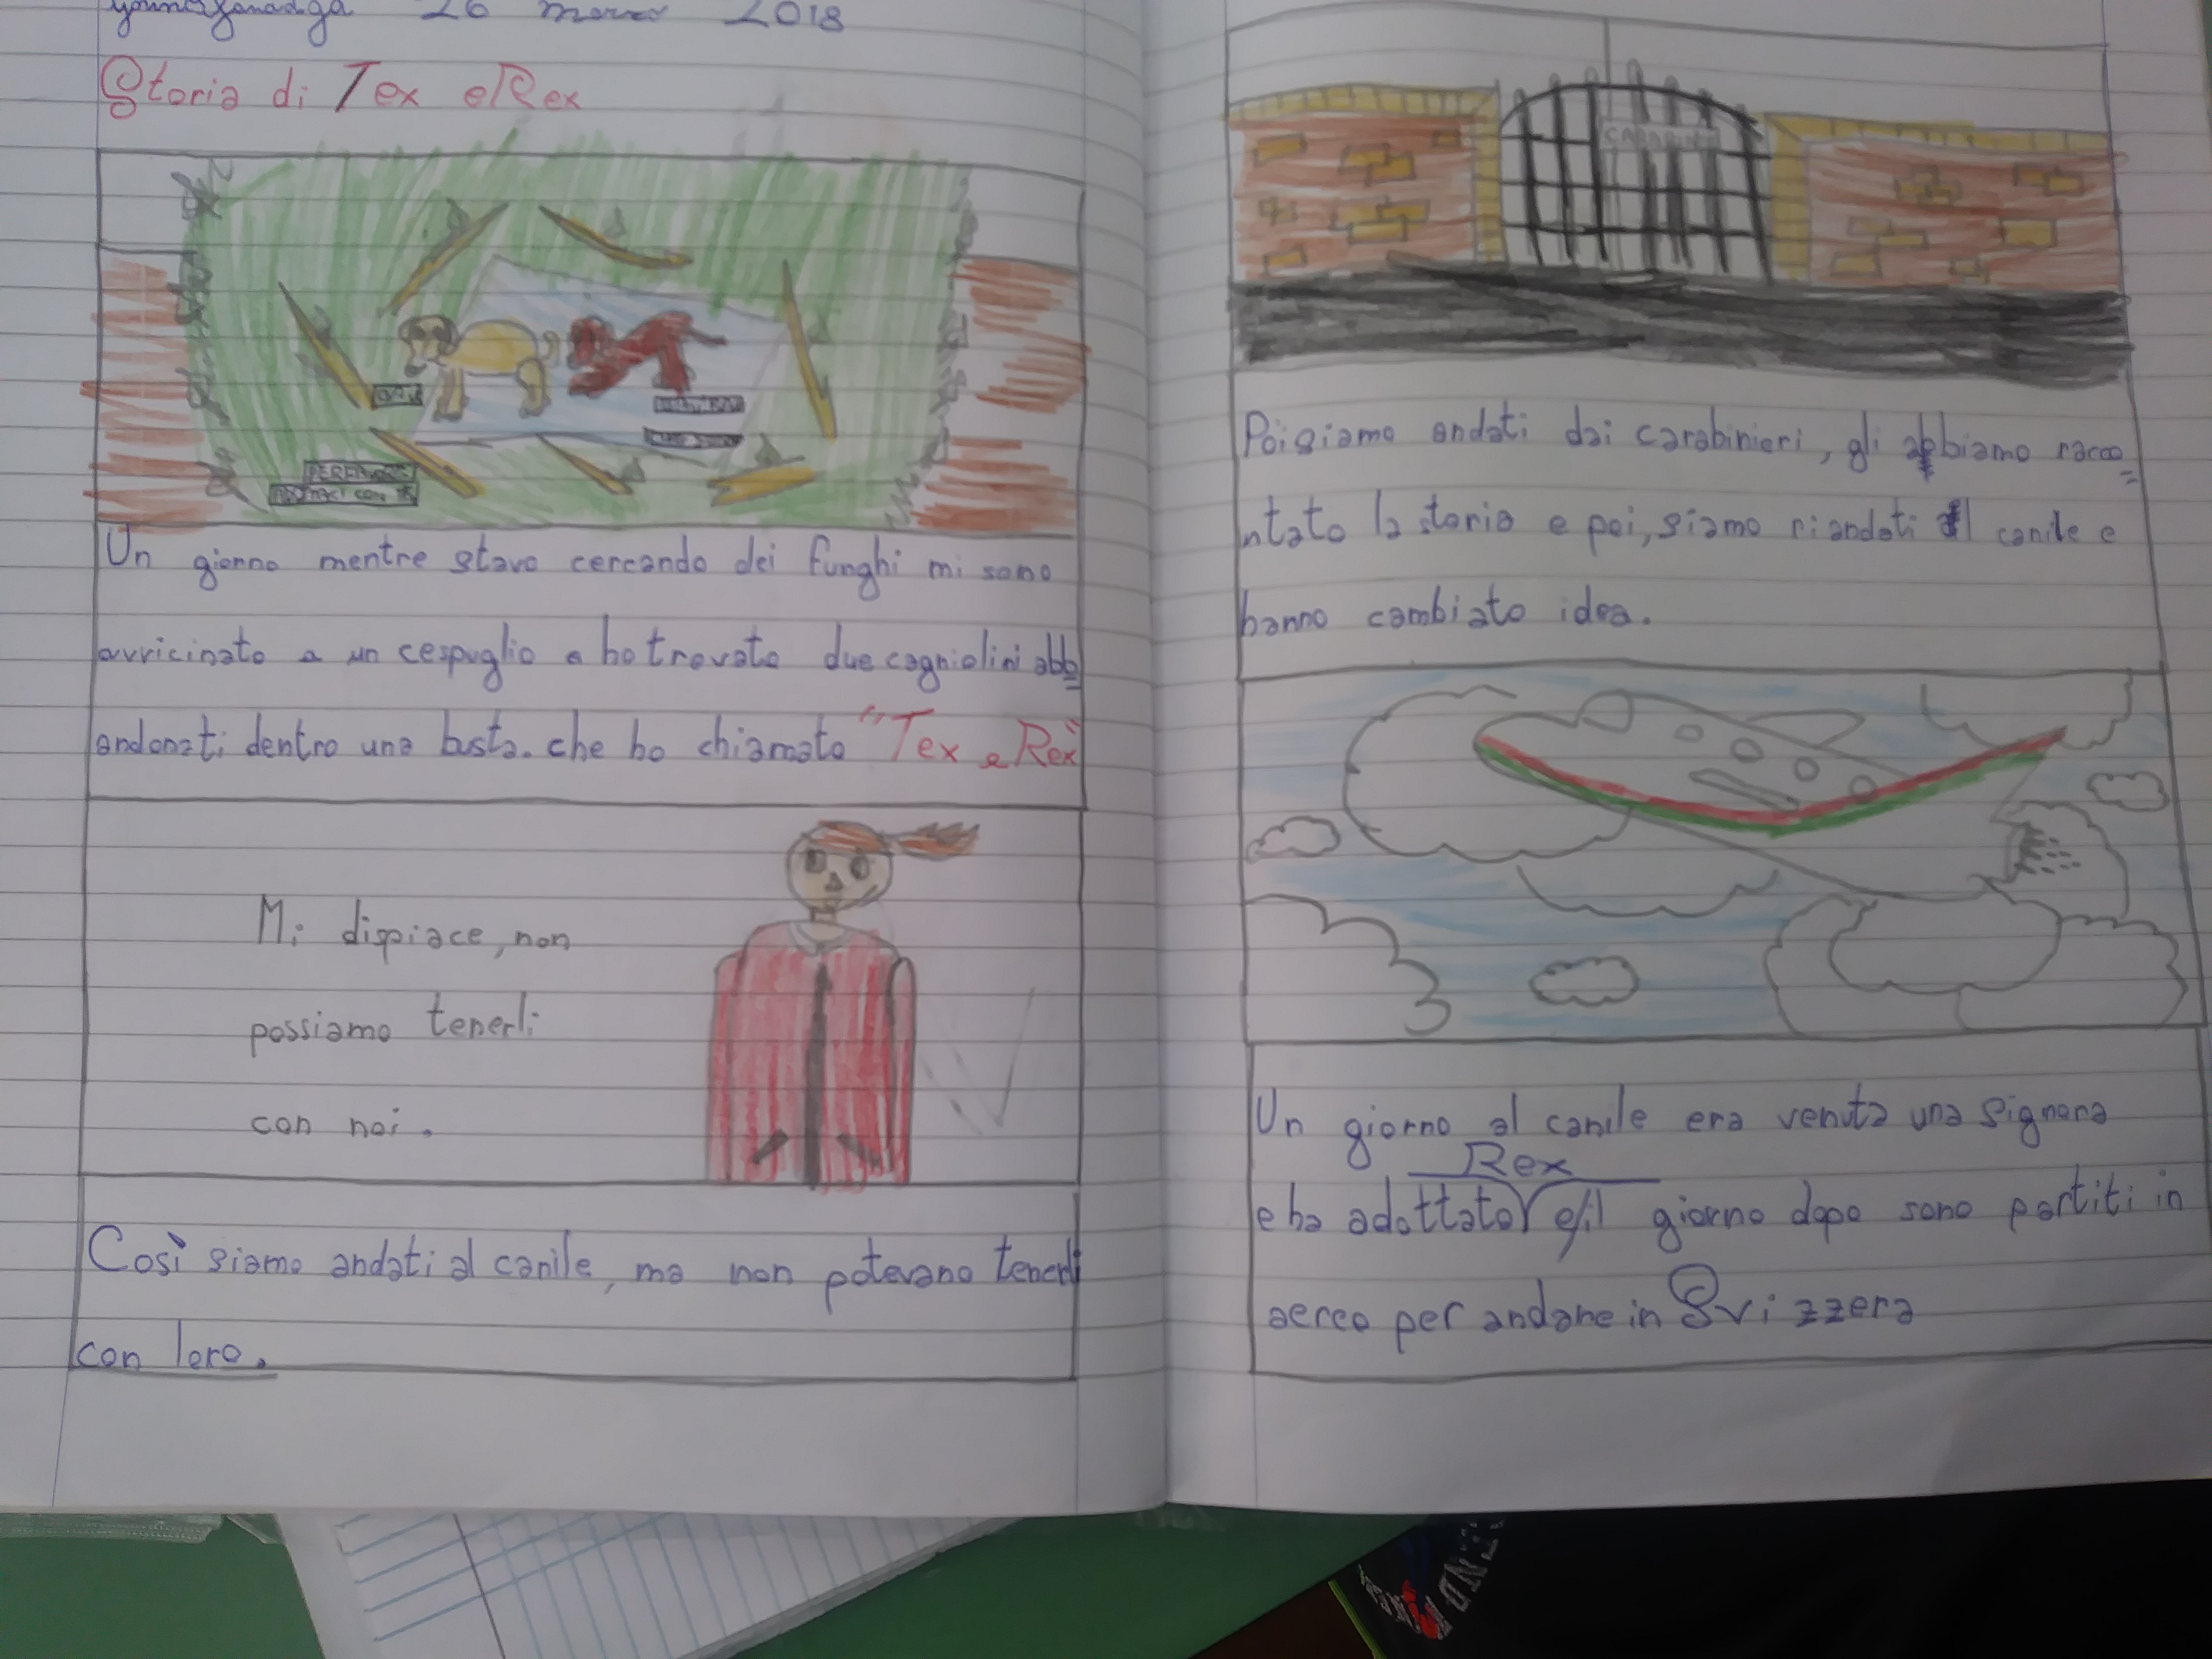 26 marzo 2018
Storia di Tex e Rex
Un giorno mentre stavo cercando dei funghi mi sono
avvicinato a un cespuglio e ho trovato due cagniolini abb
andonati dentro una busta. che ho chiamato "Tex e Rex"
Mi dispiace, non
possiamo tenerli
con noi.
Così siamo andati al canile, ma non potevano tenerli
con loro.
Poi siamo andati dai carabinieri, gli abbiamo racco
ntato la storia e poi, siamo riandati al canile e
hanno cambiato idea.
Un giorno al canile era venuta una signora
Rex
e ha adottato e il giorno dopo sono partiti in
aereo per andare in Svizzera